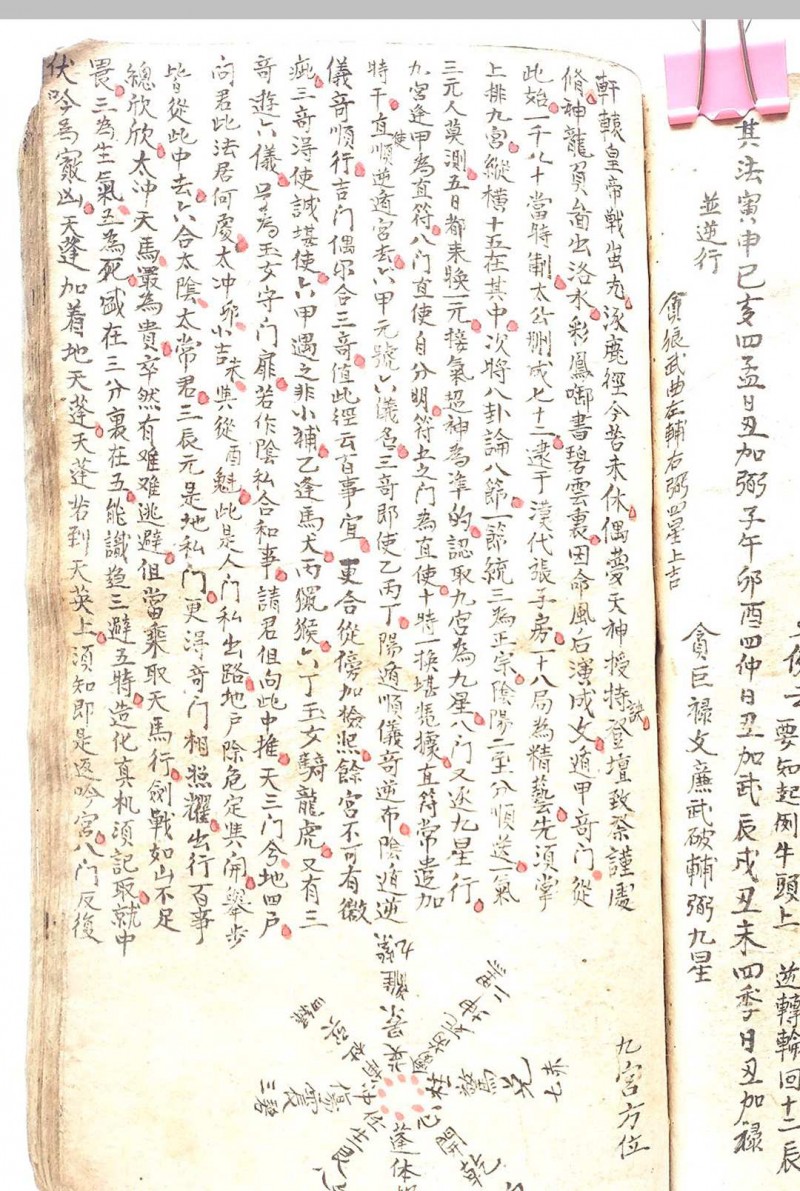 其法寅申巳亥四孟日丑加弼子午卯酉四仲日丑加武辰戌丑未四季日丑加祿
並逆行
貪狼武曲左輔右弼四星上吉
貪巨祿文廉武破輔弼九星
要知起例牛頭上 逆轉輪回十二辰
軒轅皇帝戰蚩尤涿鹿徑今苦未休偶夢天神授持訣登壇致祭謹處
脩神龍負畨出洛水彩鳳啣書碧雲裏因命風后演成文遁甲奇門從
此始一千八十當時制太公刪成七十二逮于漢代張子房一十八局為精藝先須掌
上排九宮縱橫十五在其中次將八卦論八節一節統三為正宗陰陽二至分順逆一氣
三元人莫測五日都來換一元接氣超神為准的認取九宮為九星八門又逐九星行
九宮逢甲為直符八門直使自分明符上之門為直使十特一換堪憑據直符常遣加
特干直使順逆遁宮去六甲元號六儀名三奇即使乙丙丁陽遁順儀奇逆布陰遁逆
儀奇順行吉门偶尔合三奇值此經云百事宜更合從傍加檢照餘宮不可有微
疵三奇淂使誠堪使六甲遇之非小補乙逢馬犬丙獵猴六丁玉女騎龍虎又有三
奇遊六儀号為玉女守門扉若作陰私合和事請君但向此中推天三门兮地四户
问君此法居何處太冲卯小吉未與從酉魁此是人门私出路地户除危定與開舉步
皆從此中去六合太陰太常君三辰元是地私门更淂奇门相照耀出行百事
總欣欣太冲天馬最為貴卒然有难难逃避但當乘取天馬行劍戟如山不足
畏三為生氣五為死盛在三分衰在五能識遊三避五特造化真机須記取就中
伏吟為最凶天蓬加着地天蓬天蓬若到天英上須知即是返吟宮八门反復
九宮方位
七赤
三碧
蓬休